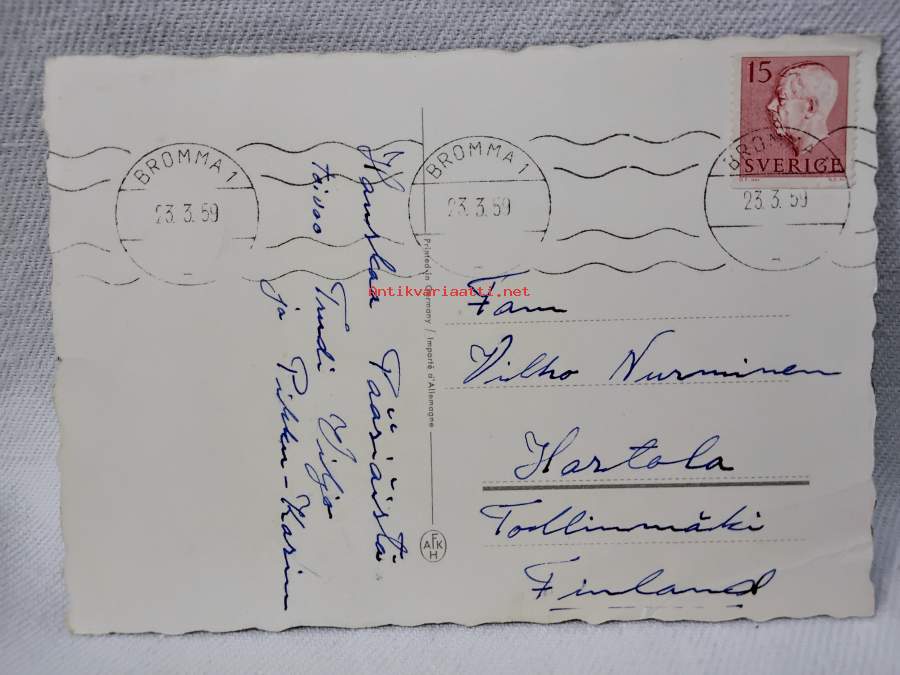 15
SVERIGE
BROMMA 1
23. 3. 59
BROMMA 1
23. 3. 59
BROMMA
23. 3. 59
Hauskaa Pääsiäistä
toivoo Trudi Viljo
ja Pikku-Karin
Printed in Germany / Importé d'Allemagne
AFKH
Antikvariaatti.net
Fam
Vilho Nurminen
Hartola
Tollinmäki
Finland